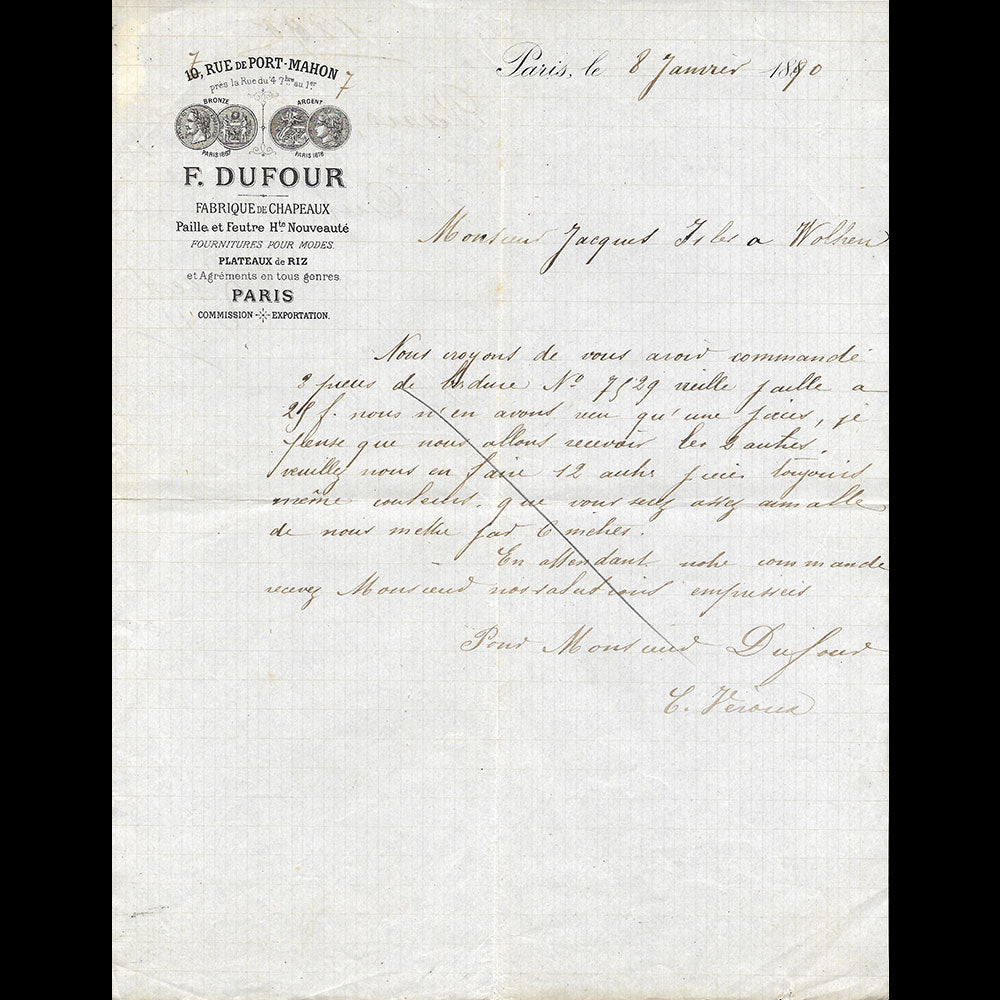 7
10, RUE DE PORT-MAHON
près la Rue du 4 7bre au 1er
7
BRONZE ARGENT
PARIS 1867 PARIS 1878
F. DUFOUR
FABRIQUE DE CHAPEAUX
Paille et Feutre Hte Nouveauté
FOURNITURES POUR MODES.
PLATEAUX de RIZ
et Agréments en tous genres.
PARIS
COMMISSION - EXPORTATION.
Paris, le 8 Janvier 1890
Monsieur Jacques Isler a Wolhen
Nous croyons de vous avoir commandé
3 pieces de bordure No 7529 vieille paille a
25 f. nous n'en avons reçu qu'une pièces, je
pense que nous allons recevoir les 2 autres,
veuillez nous en faire 12 autres pieces toujours
même couleurs, que vous serez assez aimable
de nous mettre par 6 mètres.
En attendant notre commande
recevez Monsieur nos salutations empressées
Pour Monsieur Dufour
C. Véroux